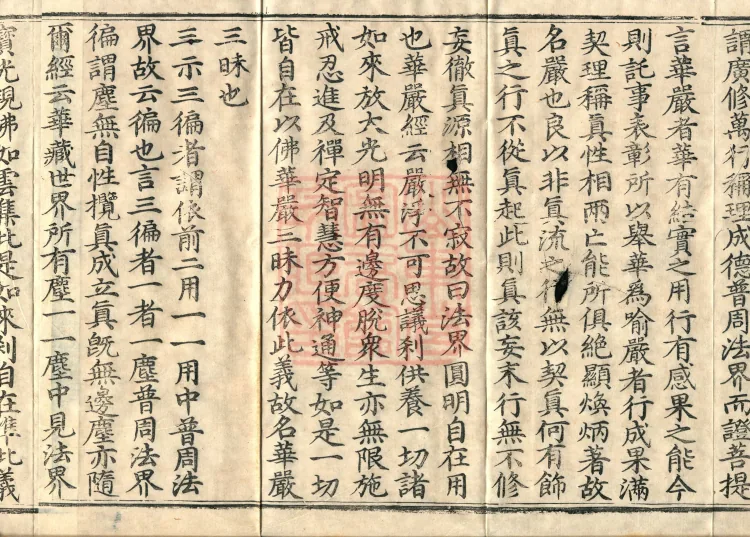 謂廣修萬行稱理成德普周法界而證菩提
言華嚴者華有結實之用行有感果之能今
則託事表彰所以舉華為喻嚴者行成果滿
契理稱真性相兩亡能所俱絕顯煥炳著故
名嚴也良以非真流之行無以契真何有飾
真之行不從真起此則真該妄末行無不修
妄徹真源相無不寂故曰法界圓明自在用
也華嚴經云嚴淨不可思議刹供養一切諸
如來放大光明無有邊度脫衆生亦無限施
戒忍進及禪定智慧方便神通等如是一切
皆自在以佛華嚴三昧力依此義故名華嚴
三昧也
三示三徧者謂依前二用一一用中普周法
界故云徧也言三徧者一者一塵普周法界
徧謂塵無自性攬真成立真旣無邊塵亦隨
爾經云華藏世界所有塵一一塵中見法界
寶光現佛如雲集此是如來刹自在准此義